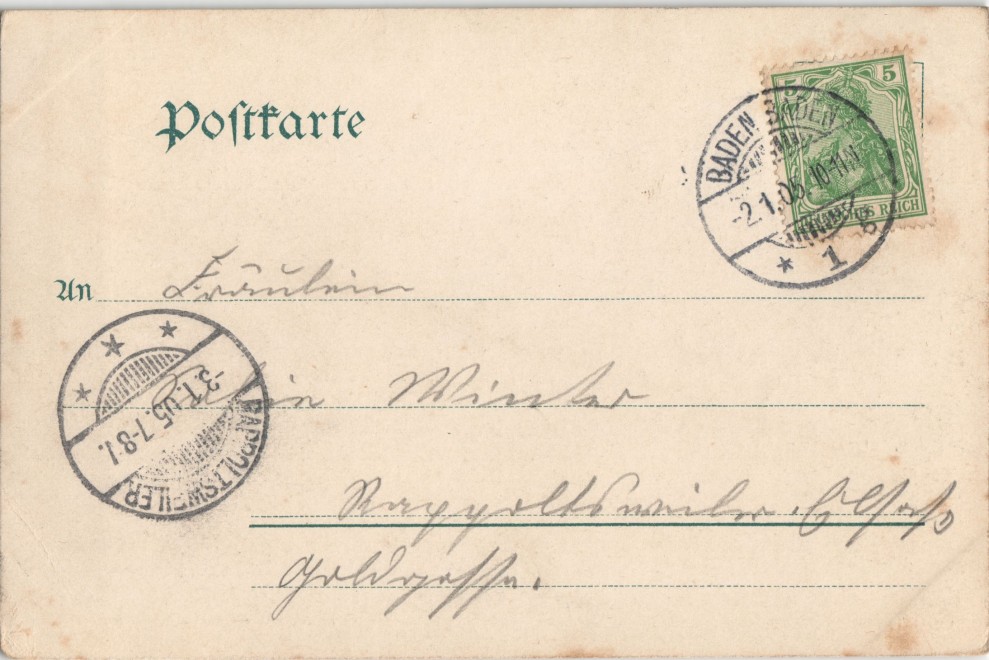 Postkarte
5 5
DEUTSCHES REICH
BADEN-BADEN
-2.1.05.10-11V.
* 1 g
An Fräulein
Winter
Rappoltsweiler. Elsaß
Goldgasse.
-3.1.05. 7-8V.
RAPPOLTSWEILER